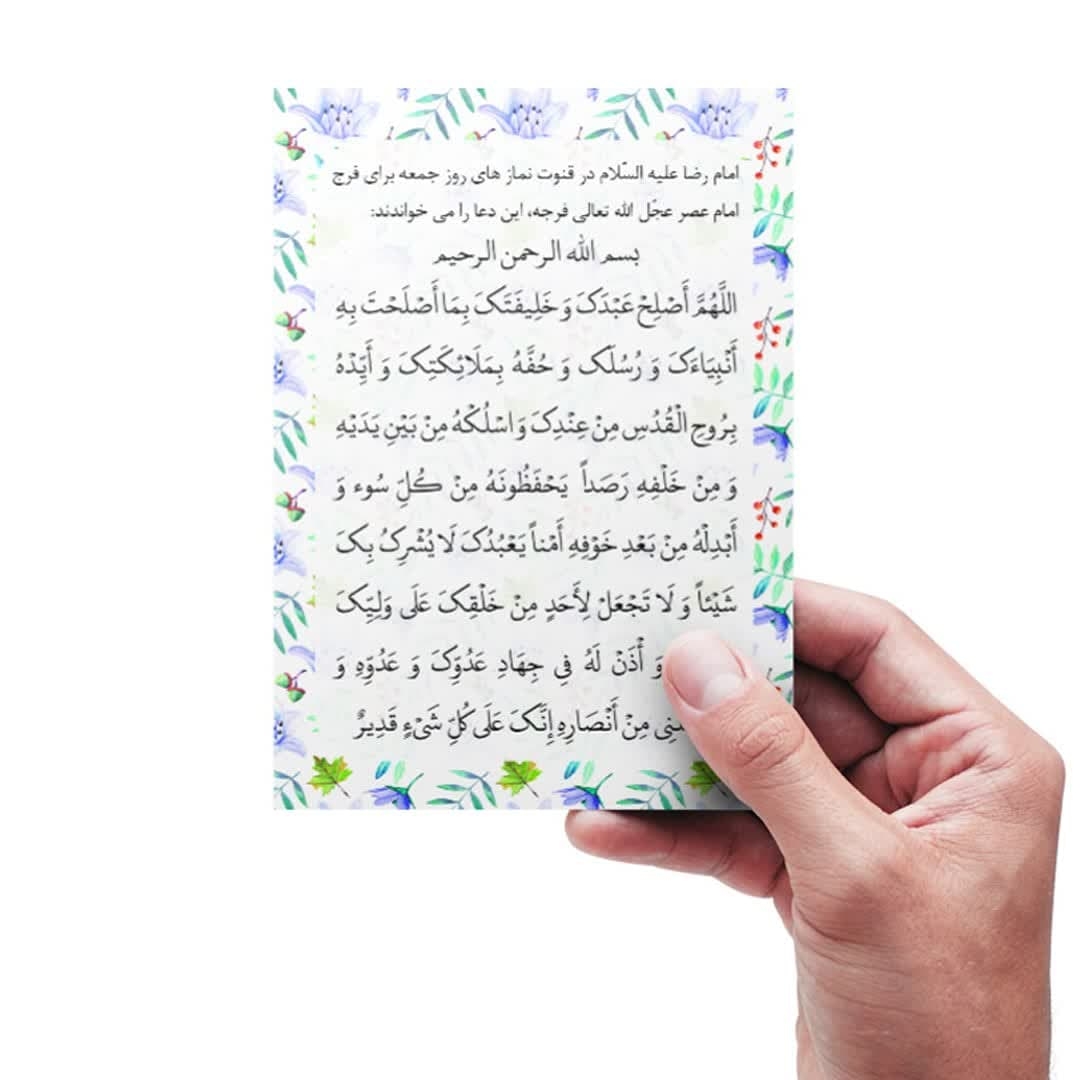 امام رضا علیه السّلام در قنوت نماز های روز جمعه برای فرج
امام عصر عجّل الله تعالی فرجه، این دعا را می خواندند:
بسم الله الرحمن الرحیم
اللَّهُمَّ أَصْلِحْ عَبْدَکَ وَ خَلِیفَتَکَ بِمَا أَصْلَحْتَ بِهِ
أَنْبِیَاءَکَ وَ رُسُلَکَ وَ حُفَّهُ بِمَلَائِکَتِکَ وَ أَیِّدْهُ
بِرُوحِ الْقُدُسِ مِنْ عِنْدِکَ وَ اسْلُکْهُ مِنْ بَیْنِ یَدَیْهِ
وَ مِنْ خَلْفِهِ رَصَداً یَحْفَظُونَهُ مِنْ کُلِّ سُوء وَ
أَبْدِلْهُ مِنْ بَعْدِ خَوْفِهِ أَمْناً یَعْبُدُکَ لَا یُشْرِکُ بِکَ
شَیْئاً وَ لَا تَجْعَلْ لِأَحَدٍ مِنْ خَلْقِکَ عَلَی وَلِیِّکَ
وَ أْذَنْ لَهُ فِی جِهَادِ عَدُوِّکَ وَ عَدُوِّهِ وَ
مِنْ أَنْصَارِهِ إِنَّکَ عَلَی کُلِّ شَیْءٍ قَدِیرٌ